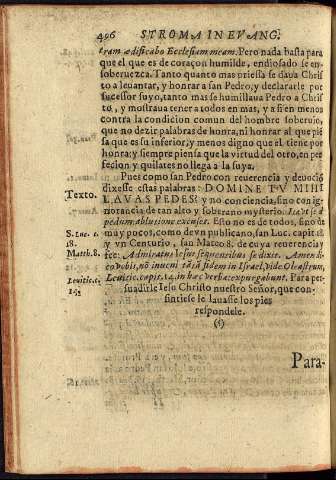 496 STROMA IN EVANG.
tram ædificabo Ecclesiam meam. Pero nada basta para
que el que es de coraçon humilde, endiosado se en-
soberuezca. Tanto quanto mas priessa se daua Christo
a leuantar, y honrar a san Pedro, y declararle por
sucessor suyo, tanto mas se humillaua Pedro a Chris
to, y mostraua tener a todos en mas, y assi en menos
contra la condicion comun del hombre soberuio,
que no dezir palabras de honra, ni honrar al que pié
sa que es su inferior, y menos digno que el tiene por
honra: y siempre piensa que la virtud del otro, en per
fecion y quilates no llega a la suya.
Pues como san Pedro con reuerencia y deuoció
Texto. dixesse estas palabras: DOMINE TV MIHI
LAVAS PEDES? y no conciencia, sino con ig-
norancia de tan alto y soberano mysterio.
pedum ablutione excuset. Esto no es de todos, sino de
S. Luc. c. muy pocos, como de vn publicano, san Luc. capit. 18
18. y vn Centurio, san Mateo 8. de cuya reuerencia y
Matth. 8. fee: Admiratus Iesus sequentibus se dixit. Amen di-
co vobis, nó inueni tátá fidem in Israel, vide Oleastrum,
Leuitic. c. Leuitic. capit. 14. in hæc verba: expurgabunt. Para per-
suadirle Iesu Christo nuestro Señor, que con-
sintiesse le lauasse los pies
respondele.
Para-